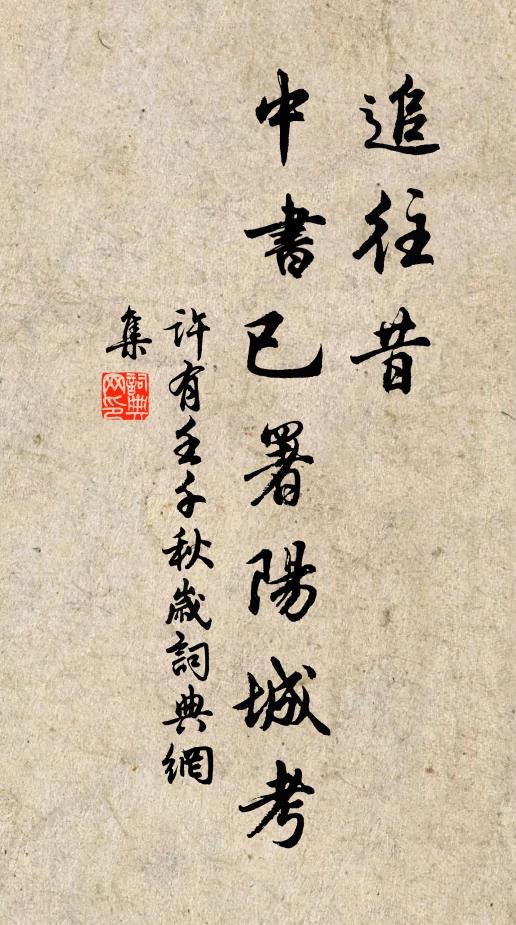 追往昔
中書已署陽城考
許有壬千秋歲詞典網
集
詞典網印